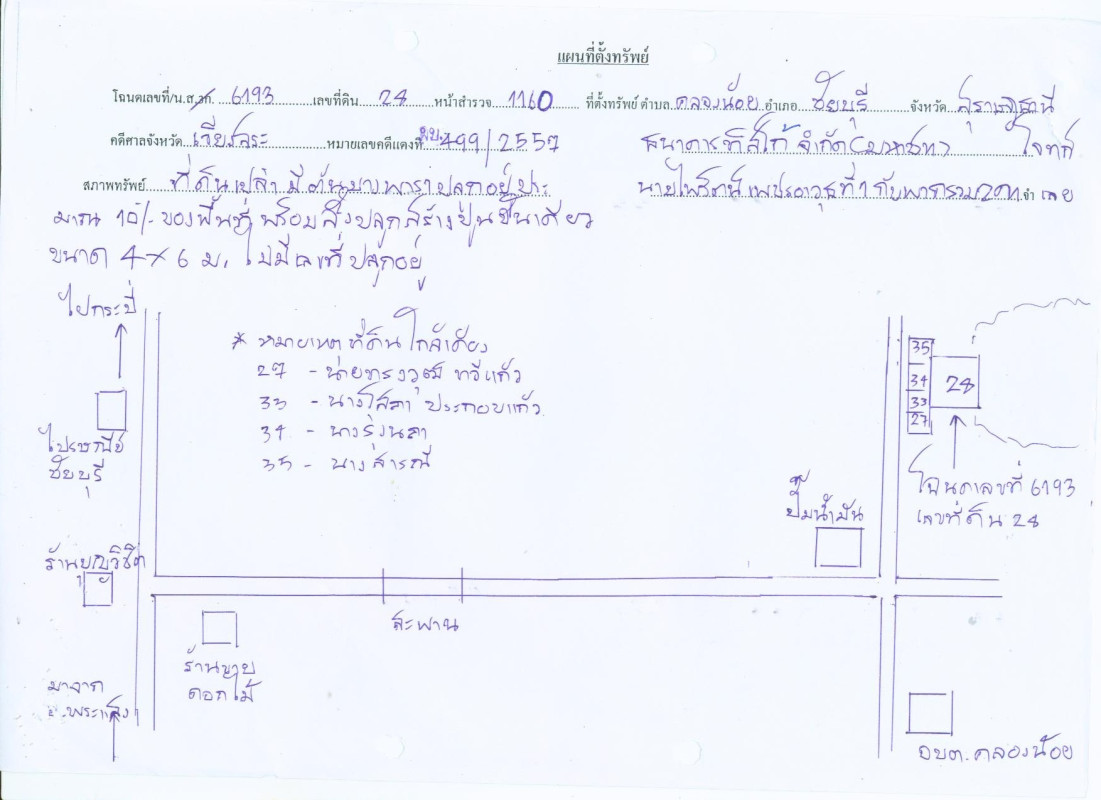 แผนที่ตั้งทรัพย์
โฉนดเลขที่/น.ส.3ก. 6193 เลขที่ดิน 28 หน้าสำรวจ 1160 ที่ตั้งทรัพย์ ตำบล คลองน้อย อำเภอ ชัยบุรี จังหวัด สุราษฎร์ธานี
คดีศาลจังหวัด เวียงสระ หมายเลขคดีแดงที่ ผบ. 499/2557 ธนาคารทิสโก้ จำกัด (มหาชน) โจทก์
สภาพทรัพย์ ที่ดินเปล่า มีต้นยางพาราปลูกอยู่ประ นายไพรัตน์ เพชรอาวุธ ที่ 1 กับพวกรวม 2 คน จำเลย
มาณ 10/- ของพื้นที่ พร้อมสิ่งปลูกสร้างปูนชั้นเดียว
ขนาด 4 x 6 ม. ไม่มีเลขที่ ปลูกอยู่
ไปกระบี่
* หมายเหตุ ที่ดินใกล้เคียง
27 - นายทรงวุฒิ ทวีแก้ว
33 - นางโสภา ประกอบแก้ว
34 - นางรุ่งนภา
35 - นางสารณี
35
34
33
27
28
ไปรษณีย์
ชัยบุรี
ปั๊มน้ำมัน
โฉนดเลขที่ 6193
เลขที่ดิน 28
ร้านบุญวิชิต
สะพาน
ร้านขาย
ดอกไม้
มาจาก
อ.พระแสง
อบต.คลองน้อย